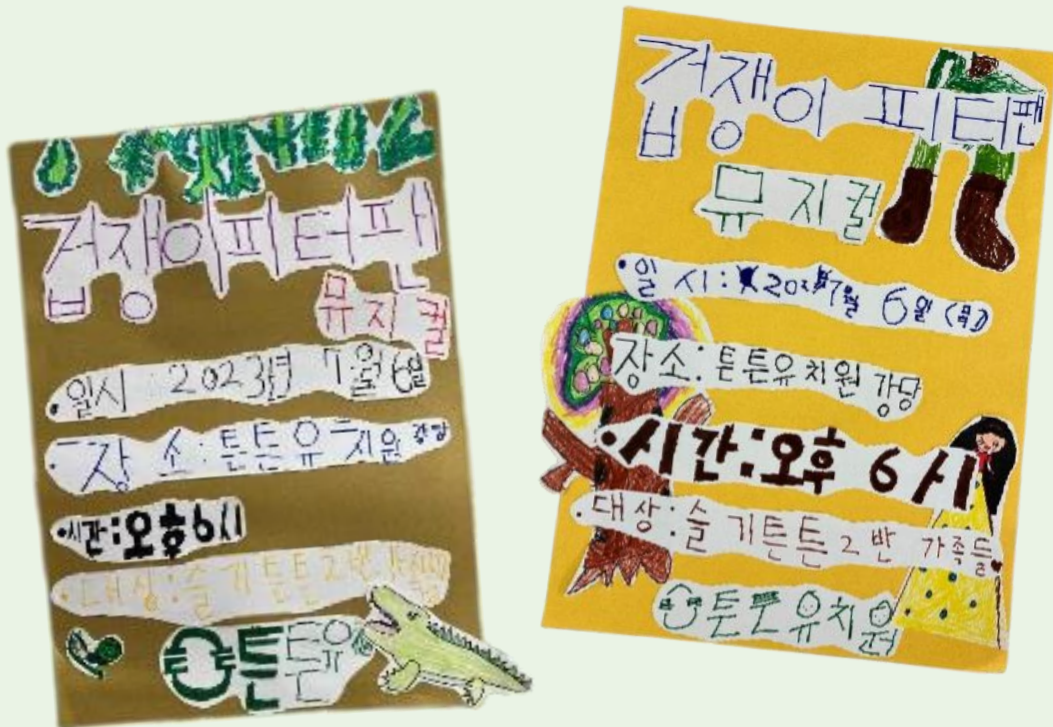 겁쟁이피터팬
뮤지컬
·일시 2023년 7월 6일
·장소:튼튼유치원 강당
·시간:오후6시
·대상:슬기튼튼2반
튼튼유
겁쟁이 피터팬
뮤지컬
·일시: 7월 6일 (목)
장소:튼튼유치원 강당
·시간:오후 6시
·대상:슬기튼튼2반 가족들
튼튼유치원